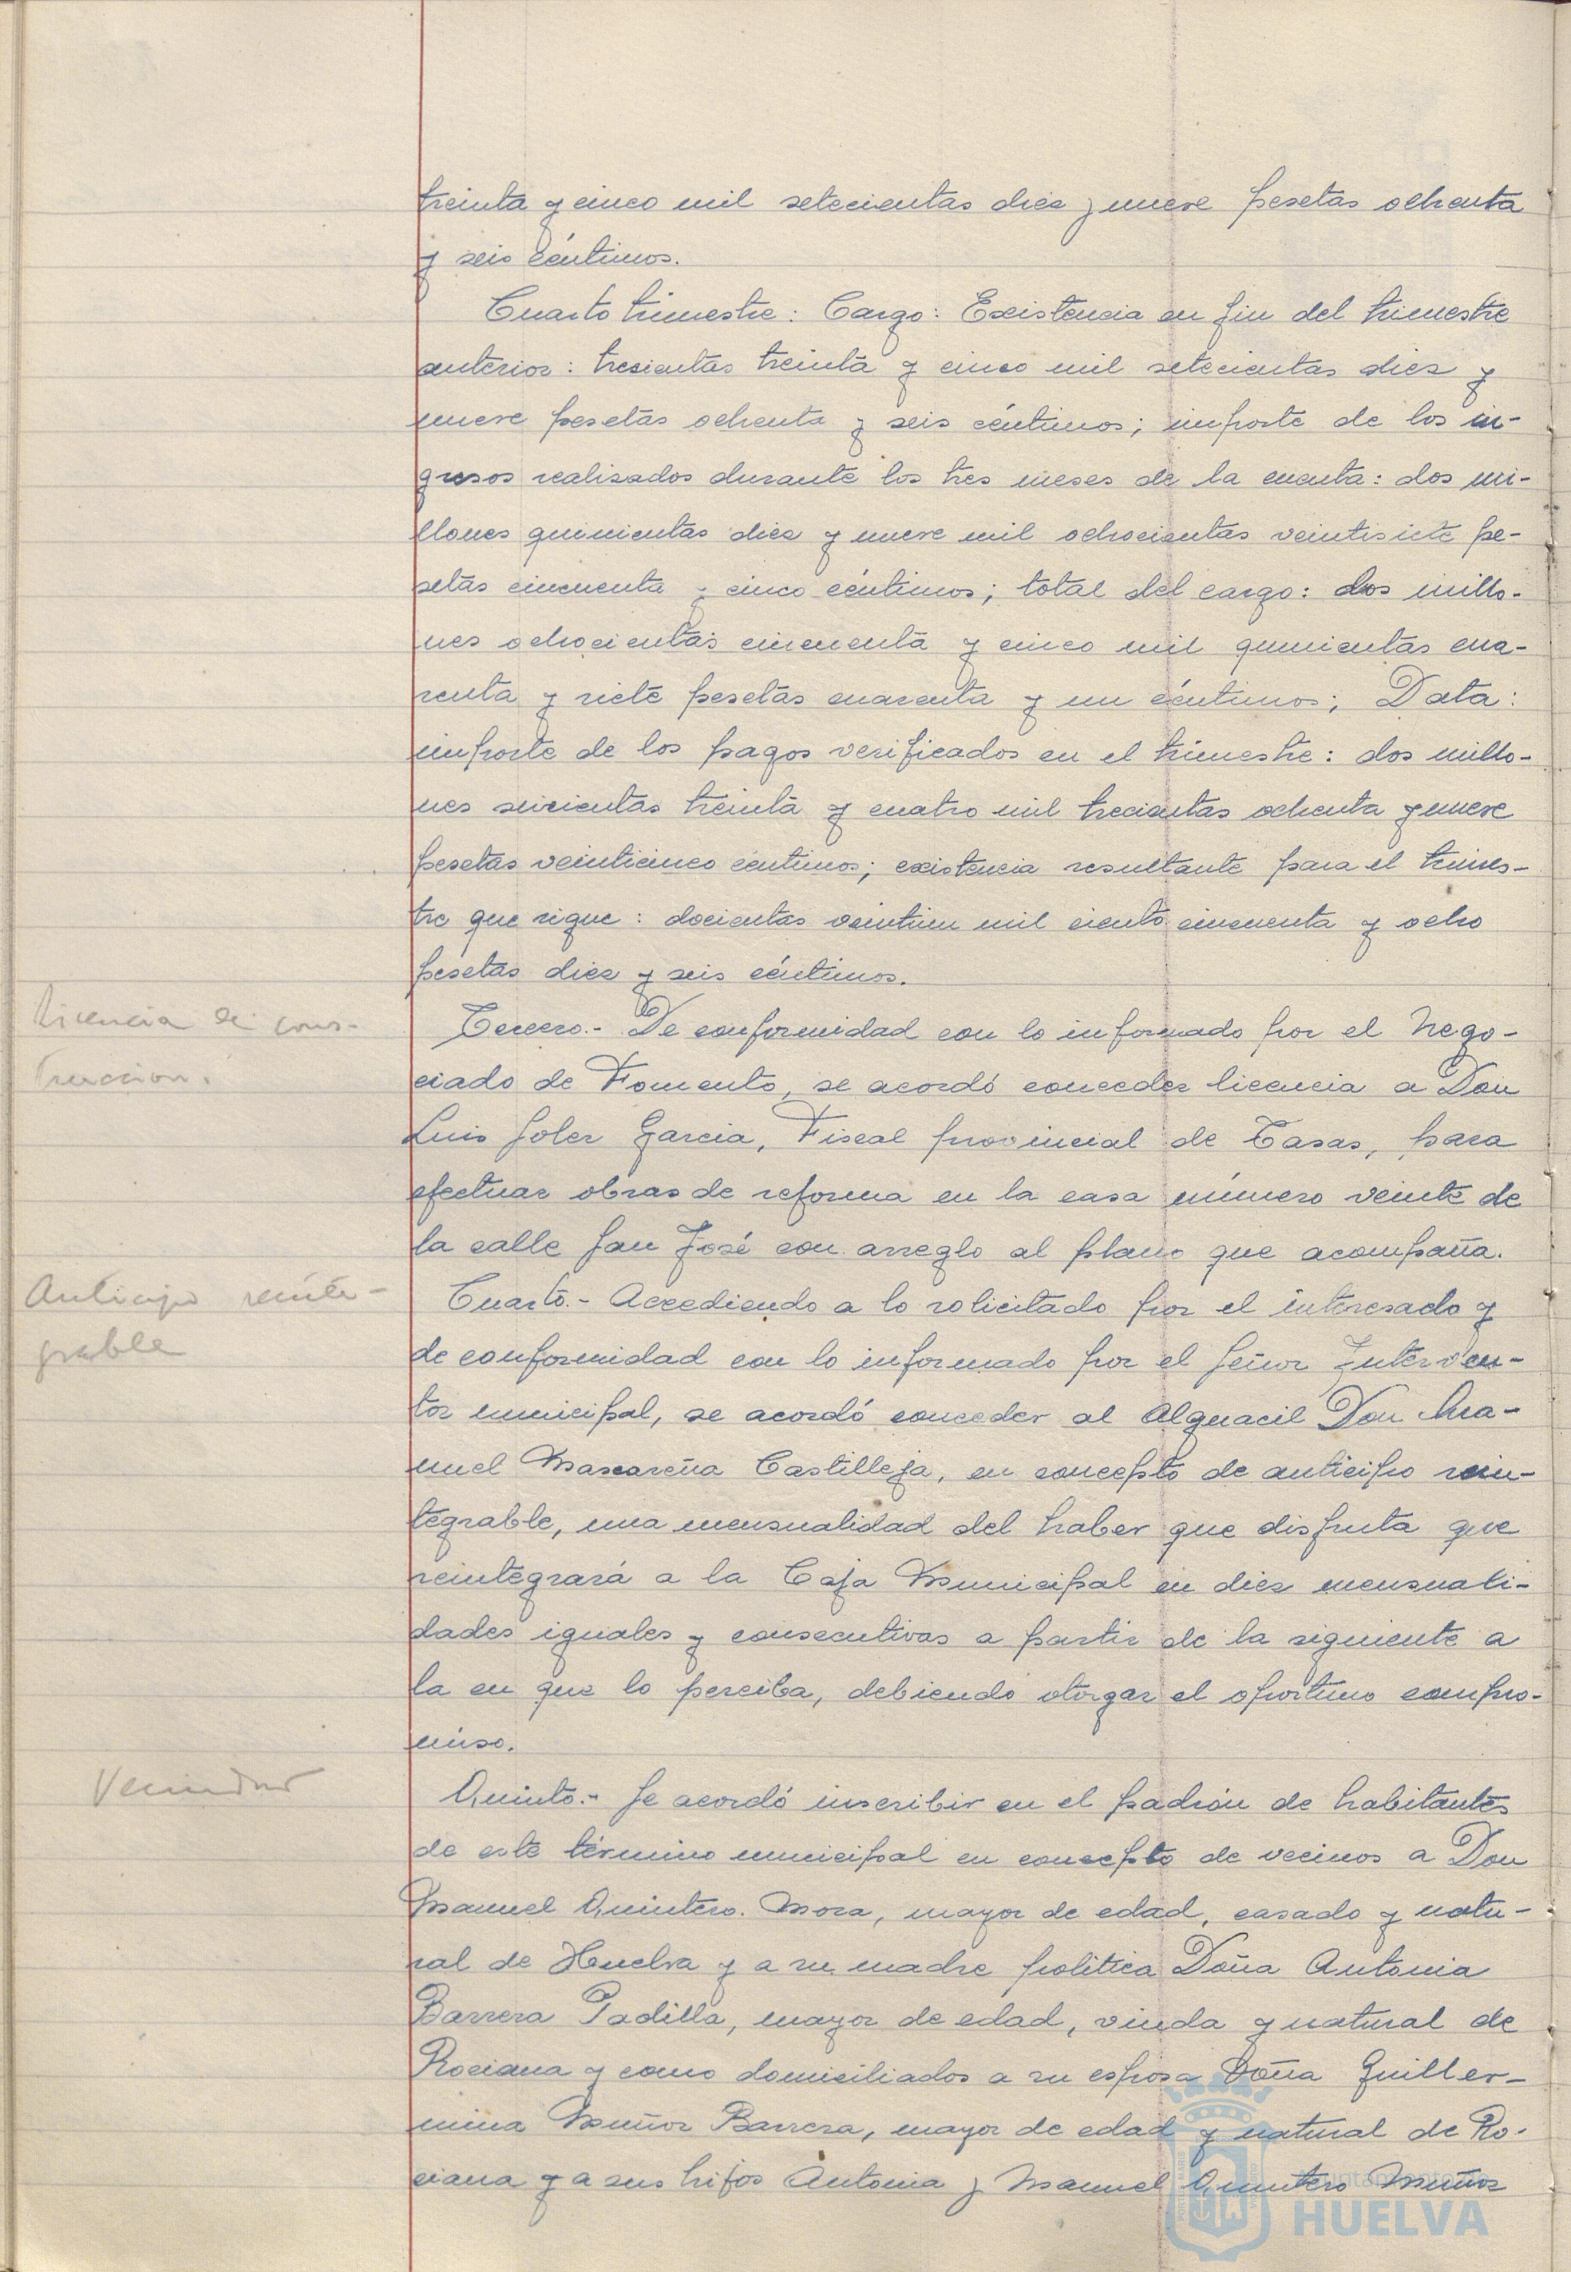 treinta y cinco mil setecientas diez y nueve pesetas ochenta
y seis céntimos.
Cuarto trimestre: Cargo: Existencia en fin del trimestre
anterior: trescientas treinta y cinco mil setecientas diez y
nueve pesetas ochenta y seis céntimos; importe de los in-
gresos realizados durante los tres meses de la cuenta: dos mi-
llones quinientas diez y nueve mil ochocientas veintisiete pe-
setas cincuenta y cinco céntimos; total del cargo: dos millo-
nes ochocientas cincuenta y cinco mil quinientas cua-
renta y siete pesetas cuarenta y un céntimos; Data:
importe de los pagos verificados en el trimestre: dos millo-
nes seiscientas treinta y cuatro mil trecientas ochenta y nueve
pesetas veinticinco céntimos; existencia resultante para el trimes-
tre que sigue: docientas veintiun mil ciento cincuenta y ocho
pesetas diez y seis céntimos.
Licencia de cons-
trucción.
Tercero.- De conformidad con lo informado por el Nego-
ciado de Fomento, se acordó conceder licencia a Don
Luis Soler Garcia, Fiscal provincial de Tasas, para
efectuar obras de reforma en la casa número veinte de
la calle San José con arreglo al plano que acompaña.
Anticipo reinte-
grable
Cuarto.- Accediendo a lo solicitado por el interesado y
de conformidad con lo informado por el Señor Interven-
tor municipal, se acordó conceder al Alguacil Don Ma-
nuel Mascareña Castilleja, en concepto de anticipo rein-
tegrable, una mensualidad del haber que disfruta que
reintegrará a la Caja Municipal en diez mensuali-
dades iguales y consecutivas a partir de la siguiente a
la en que lo perciba, debiendo otorgar el oportuno compro-
miso.
Vecindad
Quinto.- Se acordó inscribir en el padrón de habitantes
de este término municipal en concepto de vecinos a Don
Manuel Quintero Mora, mayor de edad, casado y natu-
ral de Huelva y a su madre política Doña Antonia
Barrera Padilla, mayor de edad, viuda y natural de
Rociana y como domiciliados a su esposa Doña Guiller-
mina Muñoz Barrera, mayor de edad y natural de Ro-
ciana y a sus hijos Antonia y Manuel Quintero Muñoz
Ayuntamiento de
HUELVA